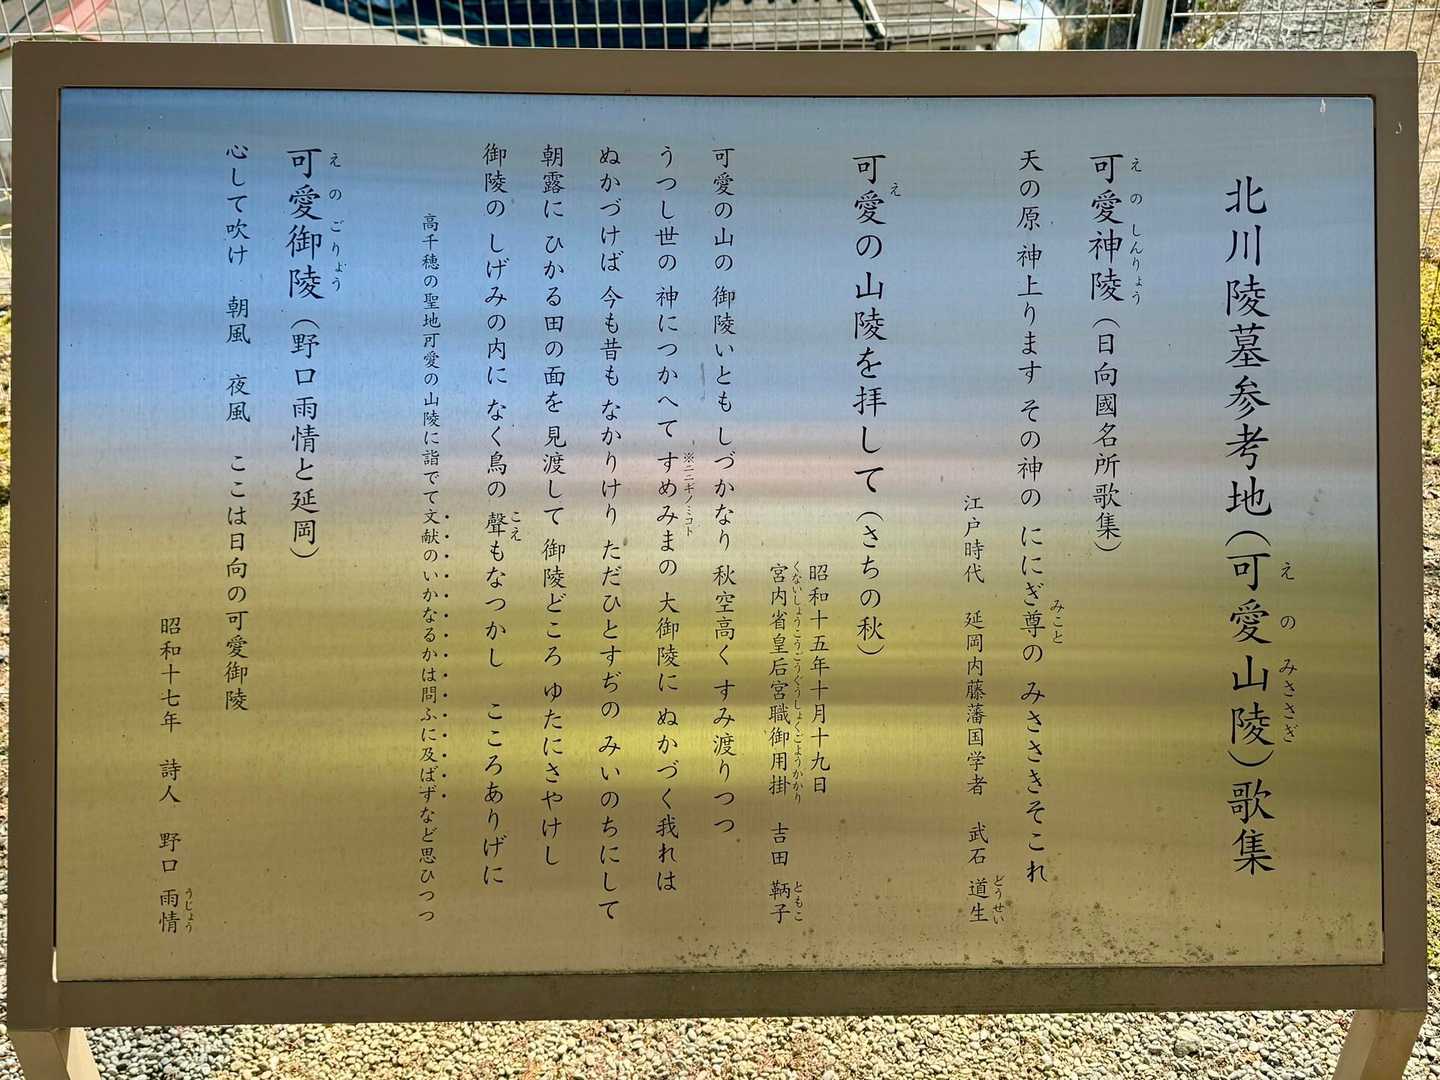 北川陵墓参考地（可愛山陵）歌集
可愛神陵（日向國名所歌集）
天の原 神上ります その神の ににぎ尊の みささきそこれ
江戸時代 延岡内藤藩国学者 武石 道生
可愛の山陵を拝して（さちの秋）
昭和十五年十月十九日
宮内省皇后宮職御用掛 吉田 鞆子
可愛の山の 御陵いとも しづかなり 秋空高く すみ渡りつつ
うつし世の 神につかへて すめみまの 大御陵に ぬかづく我れは
ぬかづけば 今も昔も なかりけり ただひとすぢの みいのちにして
朝露に ひかる田の面を 見渡して 御陵どころ ゆたにさやけし
御陵の しげみの内に なく鳥の 聲もなつかし こころありげに
高千穂の聖地可愛の山陵に詣でて文献のいかなるかは問ふに及ばずなど思ひつつ
可愛御陵（野口雨情と延岡）
心して吹け 朝風 夜風 ここは日向の可愛御陵
昭和十七年 詩人 野口 雨情
えのみささぎ
えのしんりょう
みこと
どうせい
え
くないしょうこうごうぐうしょくごようかかり
ともこ
※ニニギノミコト
こえ
えのごりょう
うじょう